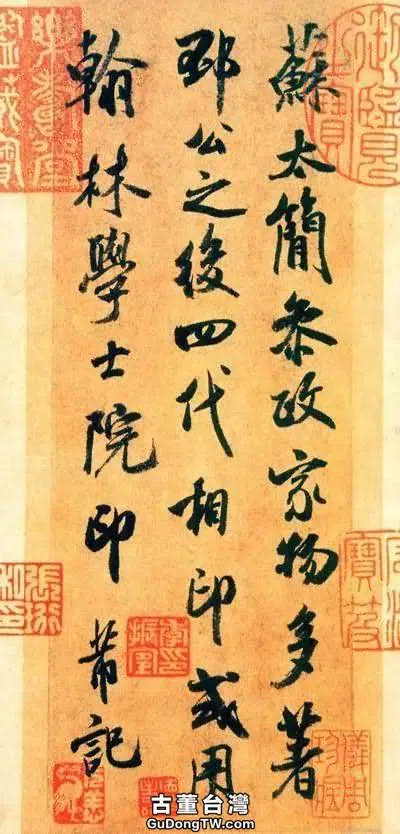 蘇太簡參政家物多著
邳公之後四代相印或用
翰林學士院印 芾記
古董台灣
GuDongTW.com